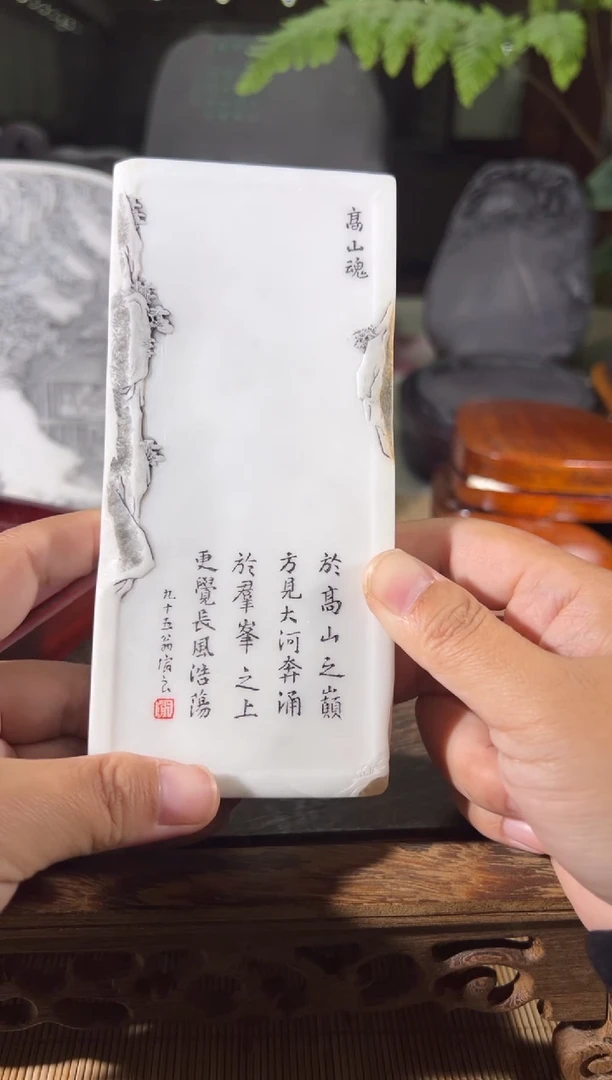 高山魂
於高山之巔
方見大河奔涌
於羣峯之上
更覺長風浩蕩
九十五翁宿云